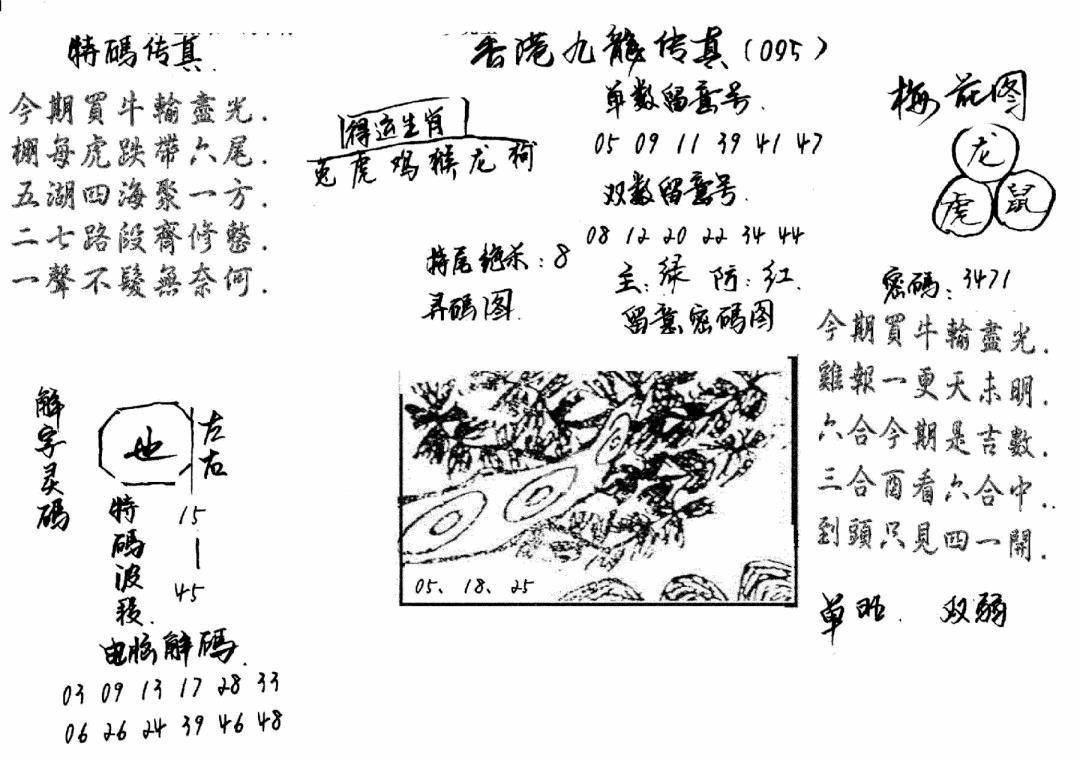 特碼传真
今期買牛輸盡光.
棚每虎跌帶六尾.
五湖四海聚一方.
二七路段齊修整.
一聲不髮無奈何.
香港九龍传真(095)
得运生肖
兔虎鸡猴龙狗
单数留意号.
05 09 11 39 41 47
双数留意号.
08 12 20 22 34 44
特尾绝杀:8
主:绿 防:红.
寻码图.
留意密码图
05、18、25
梅花图
龙
虎
鼠
密码:3471
今期買牛輸盡光.
雞報一更天未明.
六合今期是吉數.
三合酉看六合中..
到頭只見四一開.
单旺. 双弱
解字灵碼
也
左右
特碼波段.
15
|
45
电脑解碼.
03 09 13 17 28 33
06 26 24 39 46 48